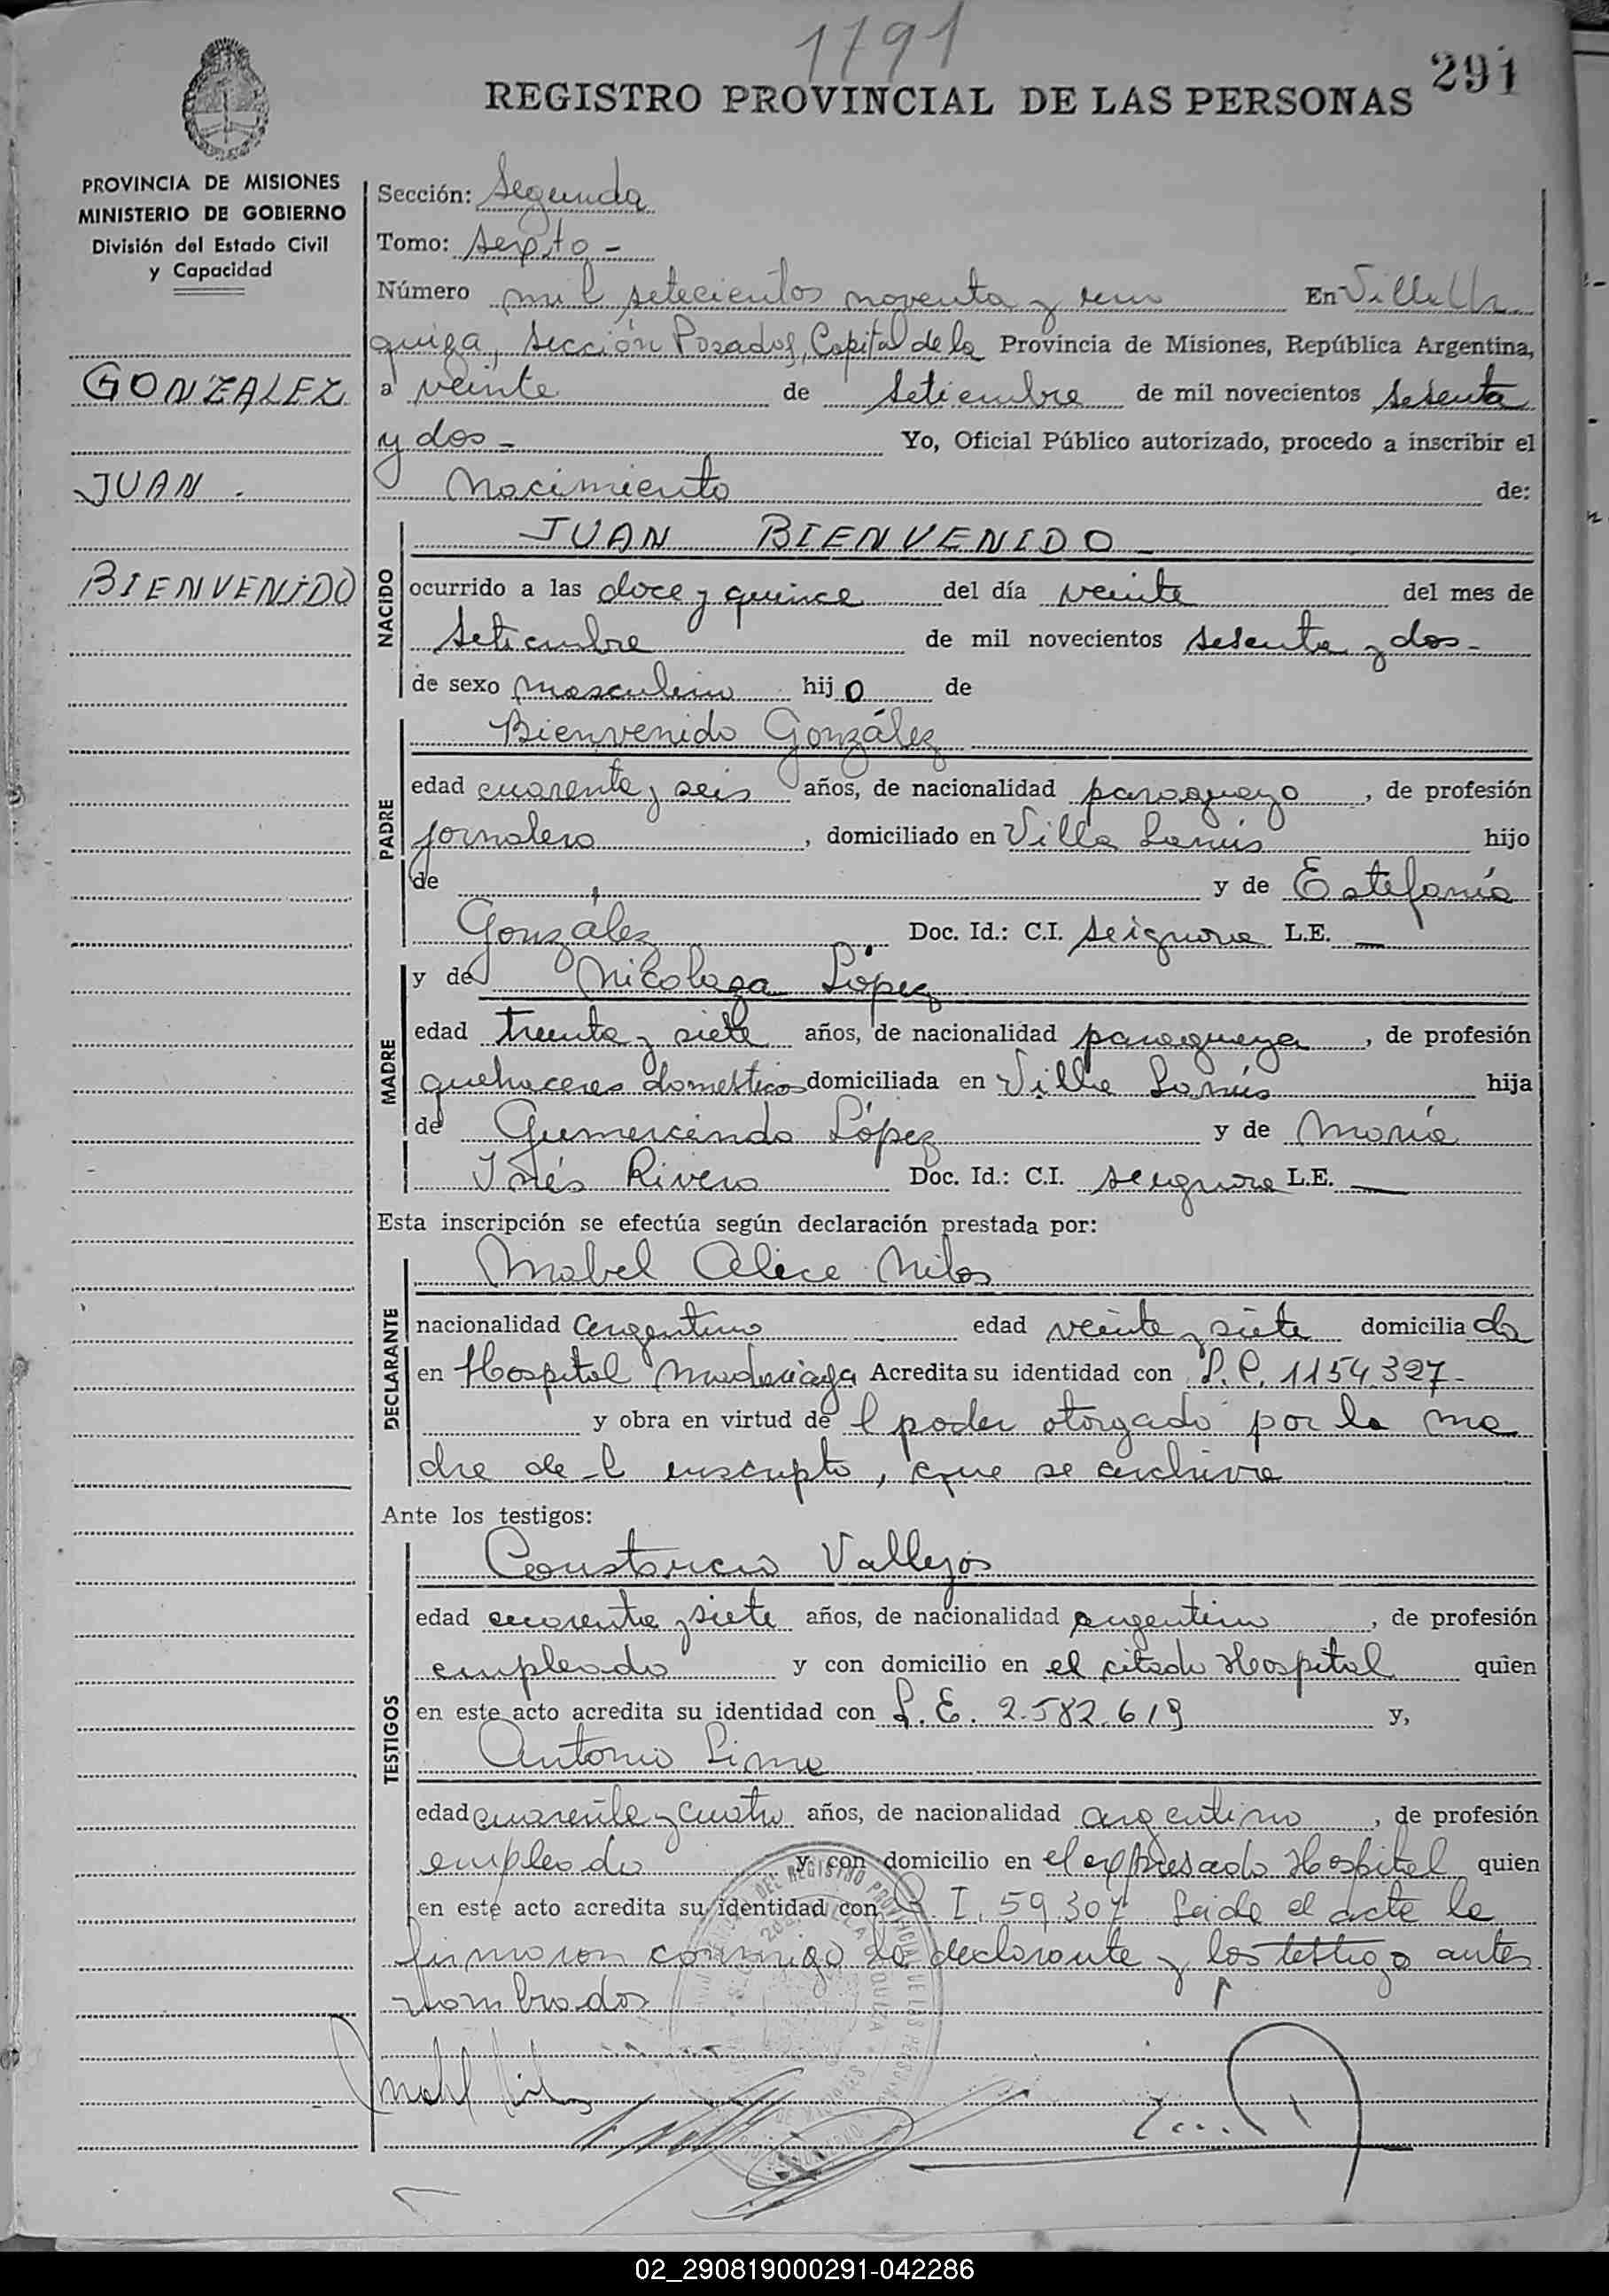 1791
291
REGISTRO PROVINCIAL DE LAS PERSONAS
PROVINCIA DE MISIONES
MINISTERIO DE GOBIERNO
División del Estado Civil
y Capacidad
GONZALEZ
JUAN.
BIENVENIDO
Sección: Segunda
Tomo: sexto -
Número mil setecientos noventa y uno En Villa Ur
quiza, Sección Posadas, Capital de la Provincia de Misiones, República Argentina,
a veinte de Setiembre de mil novecientos sesenta
y dos - Yo, Oficial Público autorizado, procedo a inscribir el
Nacimiento de:
NACIDO
JUAN BIENVENIDO
ocurrido a las doce y quince del día veinte del mes de
Setiembre de mil novecientos sesenta y dos -
de sexo masculino hijo de
PADRE
Bienvenido González
edad cuarenta y seis años, de nacionalidad paraguayo, de profesión
jornalero, domiciliado en Villa Lanús hijo
de y de Estefanía
González Doc. Id.: C.I. se ignora L.E. —
MADRE
y de Nicolaza López
edad treinta y siete años, de nacionalidad paraguaya, de profesión
quehaceres domésticos domiciliada en Villa Lanús hija
de Gumercindo López y de María
Inés Rivero Doc. Id.: C.I. se ignora L.E. —
Esta inscripción se efectúa según declaración prestada por:
DECLARANTE
Mabel Alice
nacionalidad argentina edad veinte y siete domiciliada
en Hospital Madariaga Acredita su identidad con 1154.327-
y obra en virtud del poder otorgado por la ma
dre del inscripto, que se archiva
Ante los testigos:
TESTIGOS
Constancio Vallejos
edad cuarenta y siete años, de nacionalidad argentino, de profesión
empleado y con domicilio en el citado Hospital quien
en este acto acredita su identidad con L.E. 2.582.619 y,
Antonio Lima
edad cuarenta y cuatro años, de nacionalidad argentino, de profesión
empleado y con domicilio en el expresado Hospital quien
en este acto acredita su identidad con C.I. 59.307 Leida el acta la
firmaron conmigo la declarante y los testigo antes
nombrados
02_290819000291-042286